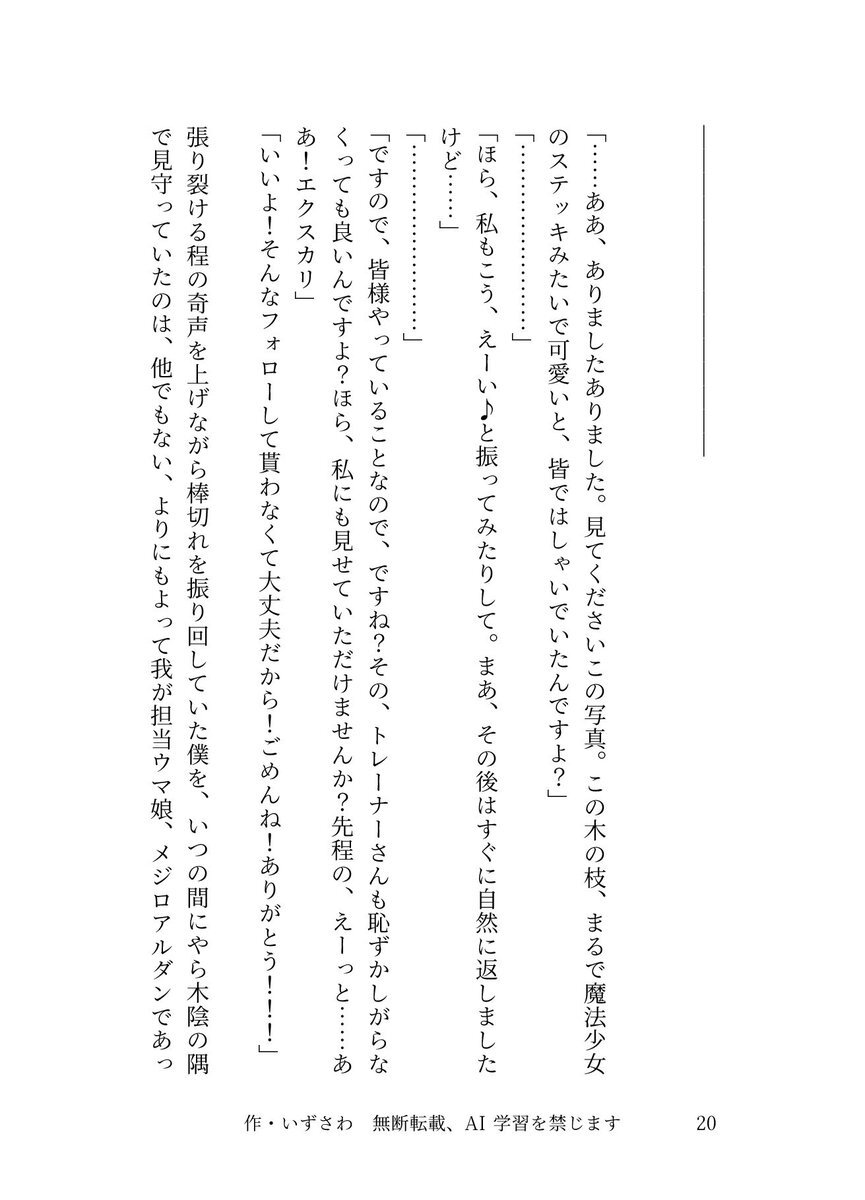 「……ああ、ありましたありました。見てくださいこの写真。この木の枝、まるで魔法少女
のステッキみたいで可愛いと、皆ではしゃいでいたんですよ？」
「…………………」
「ほら、私もこう、えーい♪と振ってみたりして。まあ、その後はすぐに自然に返しました
けど……」
「…………………」
「ですので、皆様やっていることなので、ですね？その、トレーナーさんも恥ずかしがらな
くっても良いんですよ？ほら、私にも見せていただけませんか？先程の、えーっと……あ
あ！エクスカリ」
「いいよ！そんなフォローして貰わなくて大丈夫だから！ごめんね！ありがとう！！！」
張り裂ける程の奇声を上げながら棒切れを振り回していた僕を、いつの間にやら木陰の隅
で見守っていたのは、他でもない、よりにもよって我が担当ウマ娘、メジロアルダンであっ
作・いずさわ　無断転載、AI 学習を禁じます
20